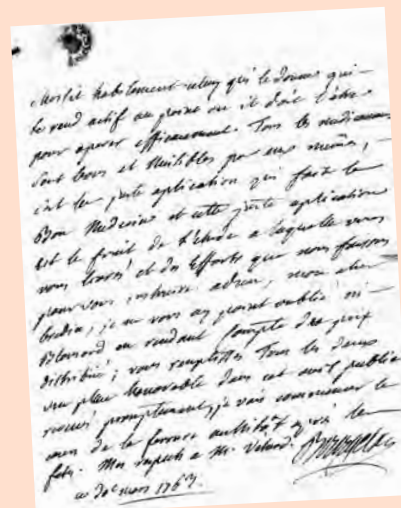 habilement celuy qui le donne qui
le rend actif au point ou il doit l'etre
pour operer efficacement. Tous les medicamens
sont bons et nuisibles par eux memes,
c'est la juste aplication qui fait le
Bon Medecin et cette juste aplication
est le fruit de l'etude a laquelle vous
vous livrés et des efforts que nous faisons
pour vous instruire adieu, mon cher
Bredin, je ne vous ay point oublié ni
en rendant Compte des prix
distribués, vous remplissés Tous les deux
une place honorable dans cet avis publié
promptement, je vais commencer le
mien de la
Mes respects a Mr.
ce 30e mars 1763.